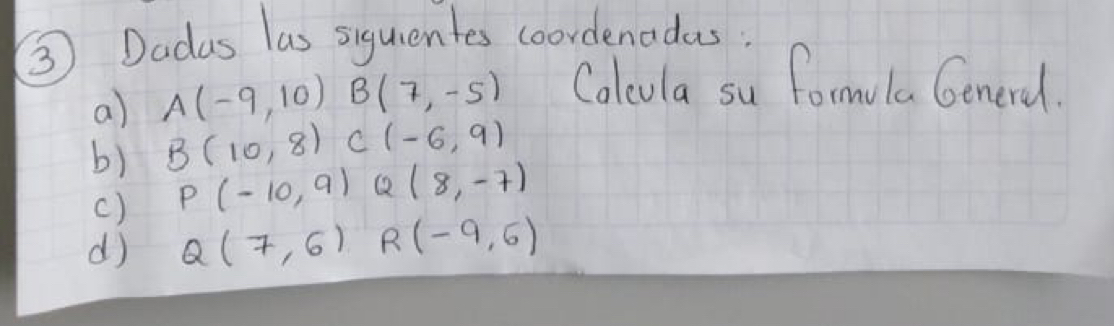 ③ Dadas las siguientes coordenadas:
a) A(-9,10) B(7,-5) Calcula su formula General.
b) B(10,8) C(-6,9)
c) P(-10,9) Q(8,-7)
d) Q(7,6) R(-9,6)